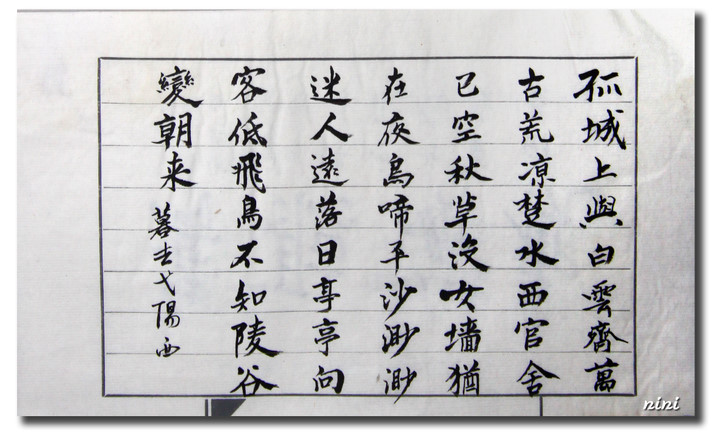 孤城上與白雲齊萬
古荒凉楚水西官舍
已空秋草沒女墻猶
在夜烏啼平沙渺渺
迷人遠落日亭亭向
客低飛鳥不知陵谷
變朝来暮去弋陽西
nini